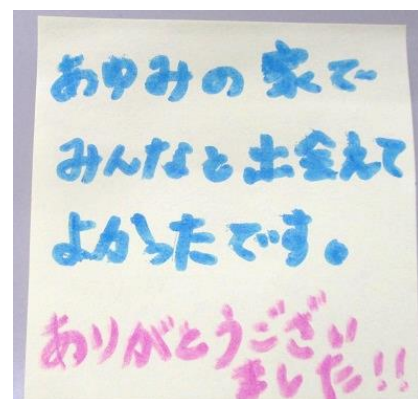 あゆみの家で
みんなと出会えて
よかったです。
ありがとうござい
ました!!